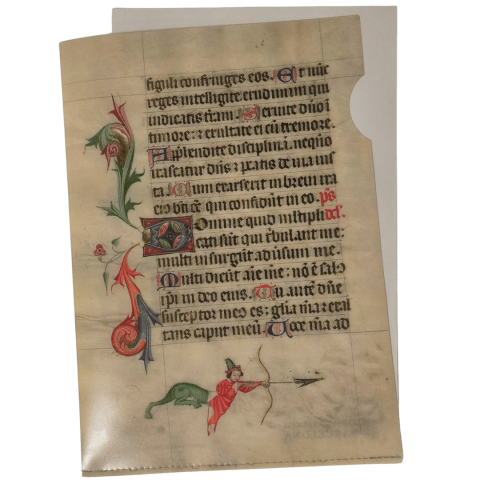 figuli confringes eos. Et nūc
reges intelligite erudimini qui
iudicatis tr̄am. Seruite dn̄o ī
timore: ⁊ exultate ei cū tremore.
Apprehendite disciplinā. nequn̄
irascatur dn̄s ⁊ pereatis de uia ius
ta. Cum exarserit in breui ira
eiꝰ bt̄i om̄s qui confidūt in eo. ps
Domine quid mltipli
cati sūt qui tribulant me:
multi insurgūt adūsum me.
Multi dicūt aīe mee: nō ē salꝰ
ipī in deo eius. Tu autē dn̄e
susceptor meꝰ es: gl̄ia mēa ⁊ exal
tans caput meū. Uoce mēa ad